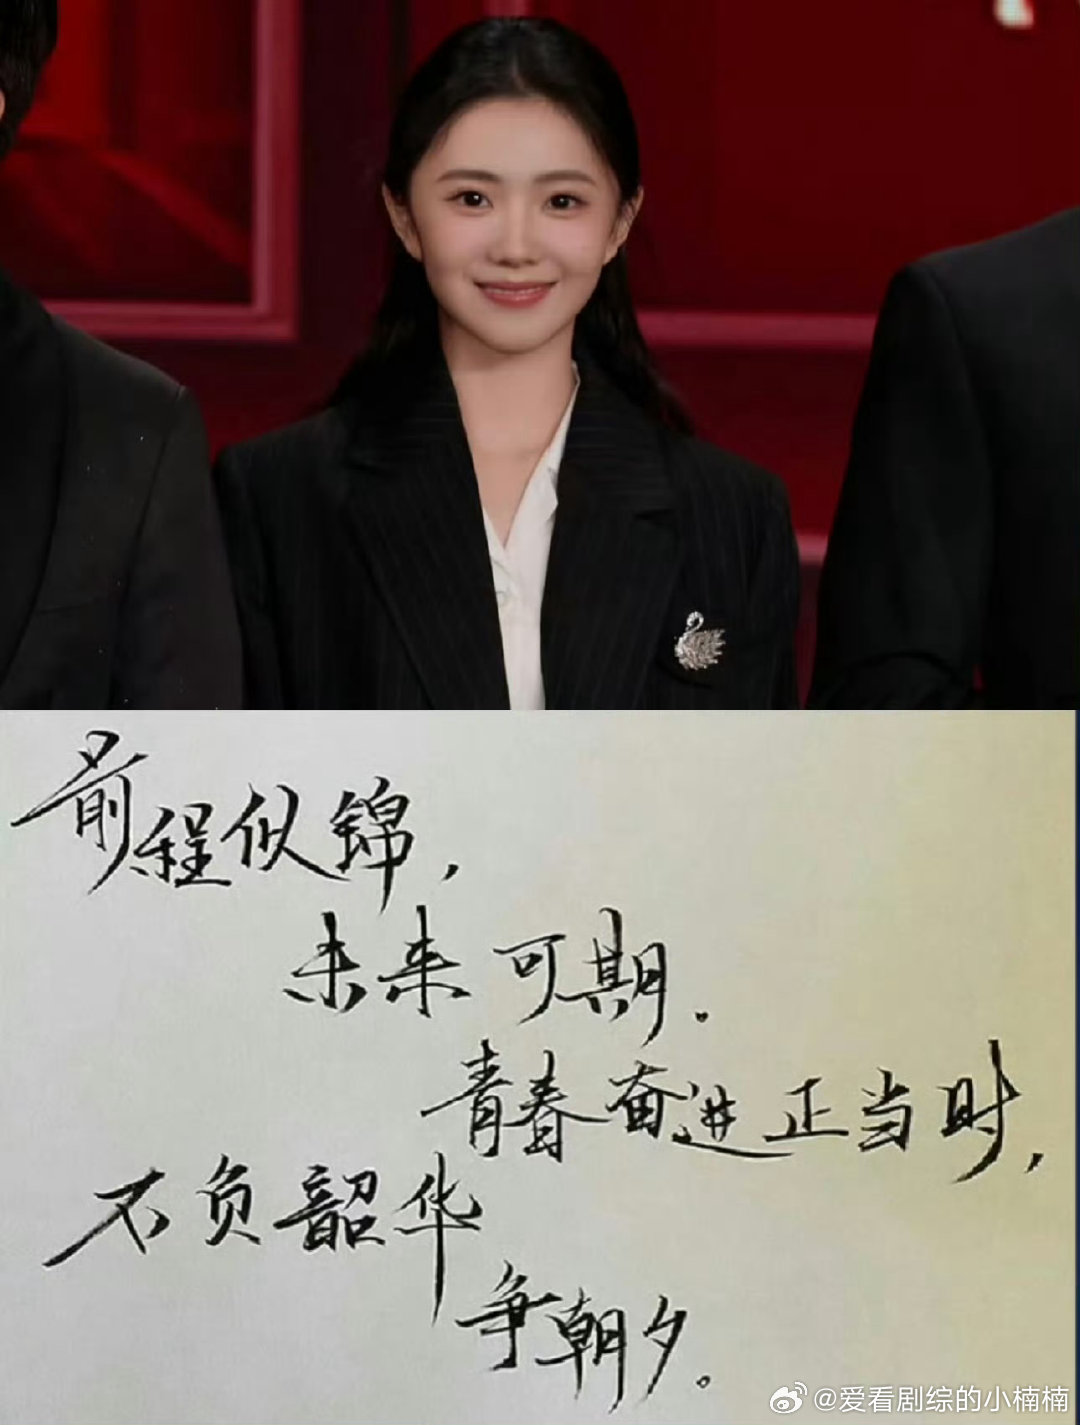 前程似锦，
未来可期．
青春奋进正当时，
不负韶华
争朝夕。
@爱看剧综的小楠楠